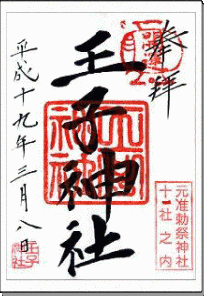 奉拝
王子神社
平成十九年三月八日
元准勅祭神社
十社之内
王子神社